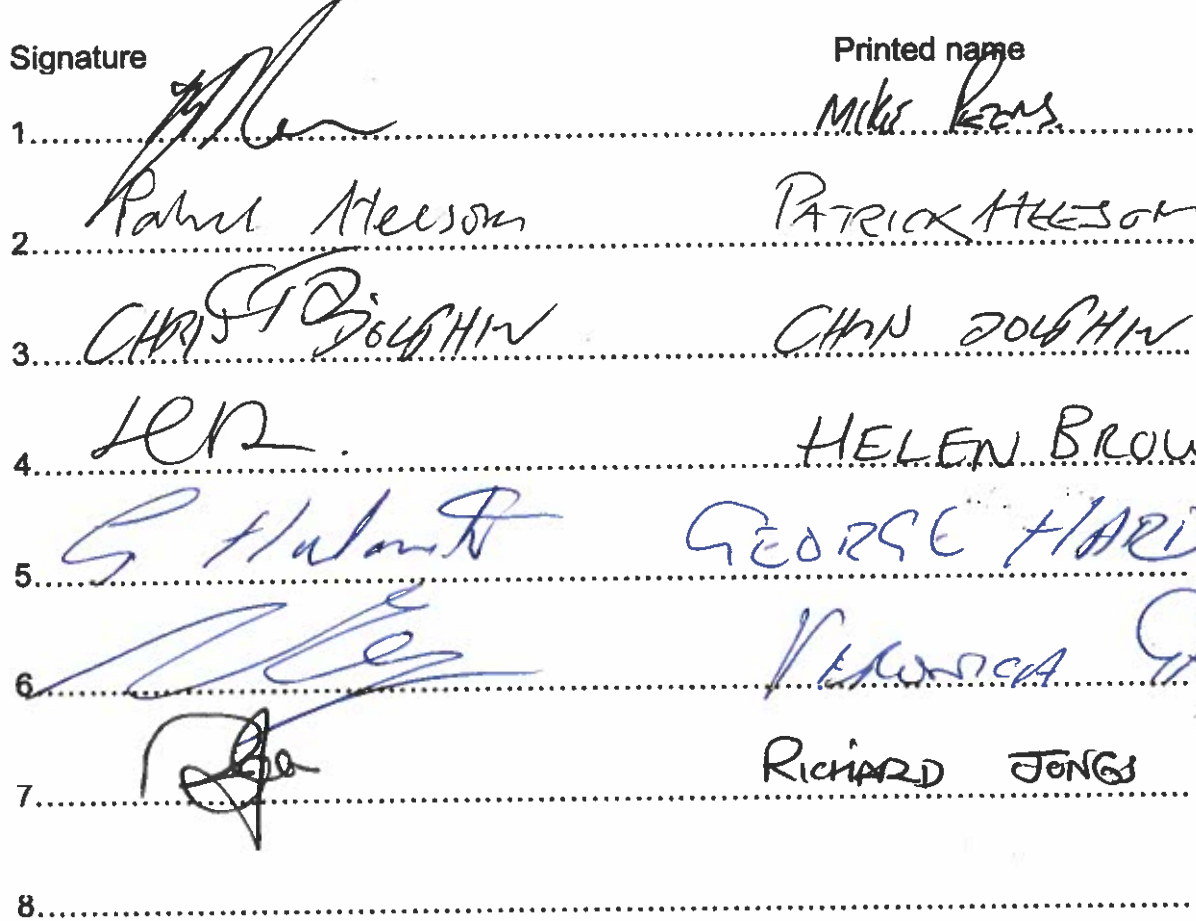 Signature Printed name
1. MIKE
2. Patrick Heesom PATRICK HEESOM
3. CHRIS DOLPHIN CHRIS DOLPHIN
4. HELEN BROW
5. G GEORGE HARD
6. VERONICA
7. RICHARD JONES
8.